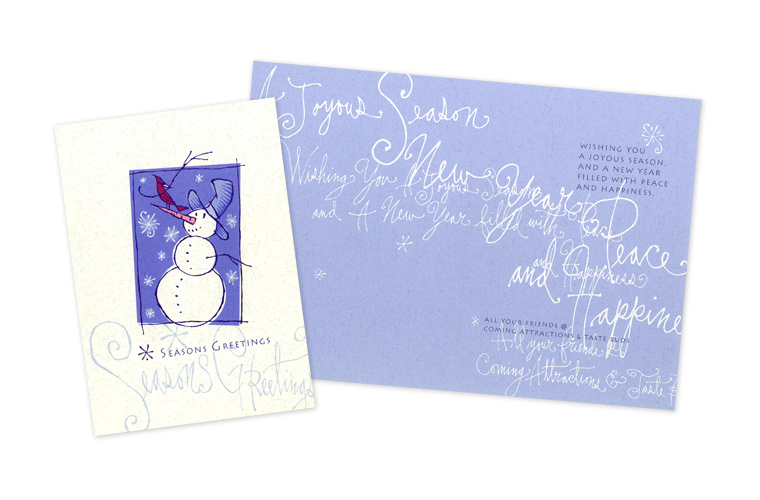 Seasons Greetings
Seasons Greetings
Joyous Season
New Year Peace
and Happine
Wishing You A Joyous Season
and A New Year filled with Peace
and Happiness
WISHING YOU
A JOYOUS SEASON,
AND A NEW YEAR
FILLED WITH PEACE
AND HAPPINESS.
ALL YOUR FRIENDS @
COMING ATTRACTIONS & TASTE BUDS
All your friends @
Coming Attractions & Taste